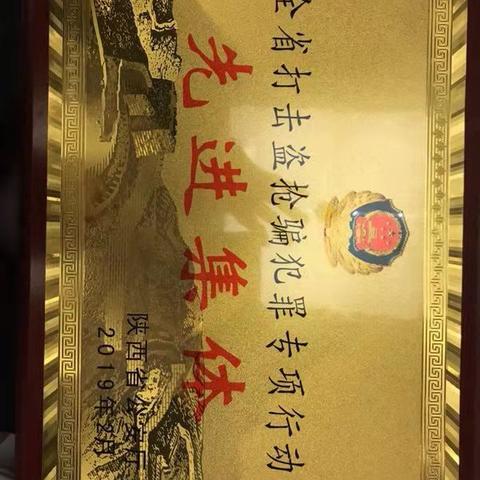 全省打击盗抢骗犯罪专项行动
先进集体
陕西省公安厅
2019年2月